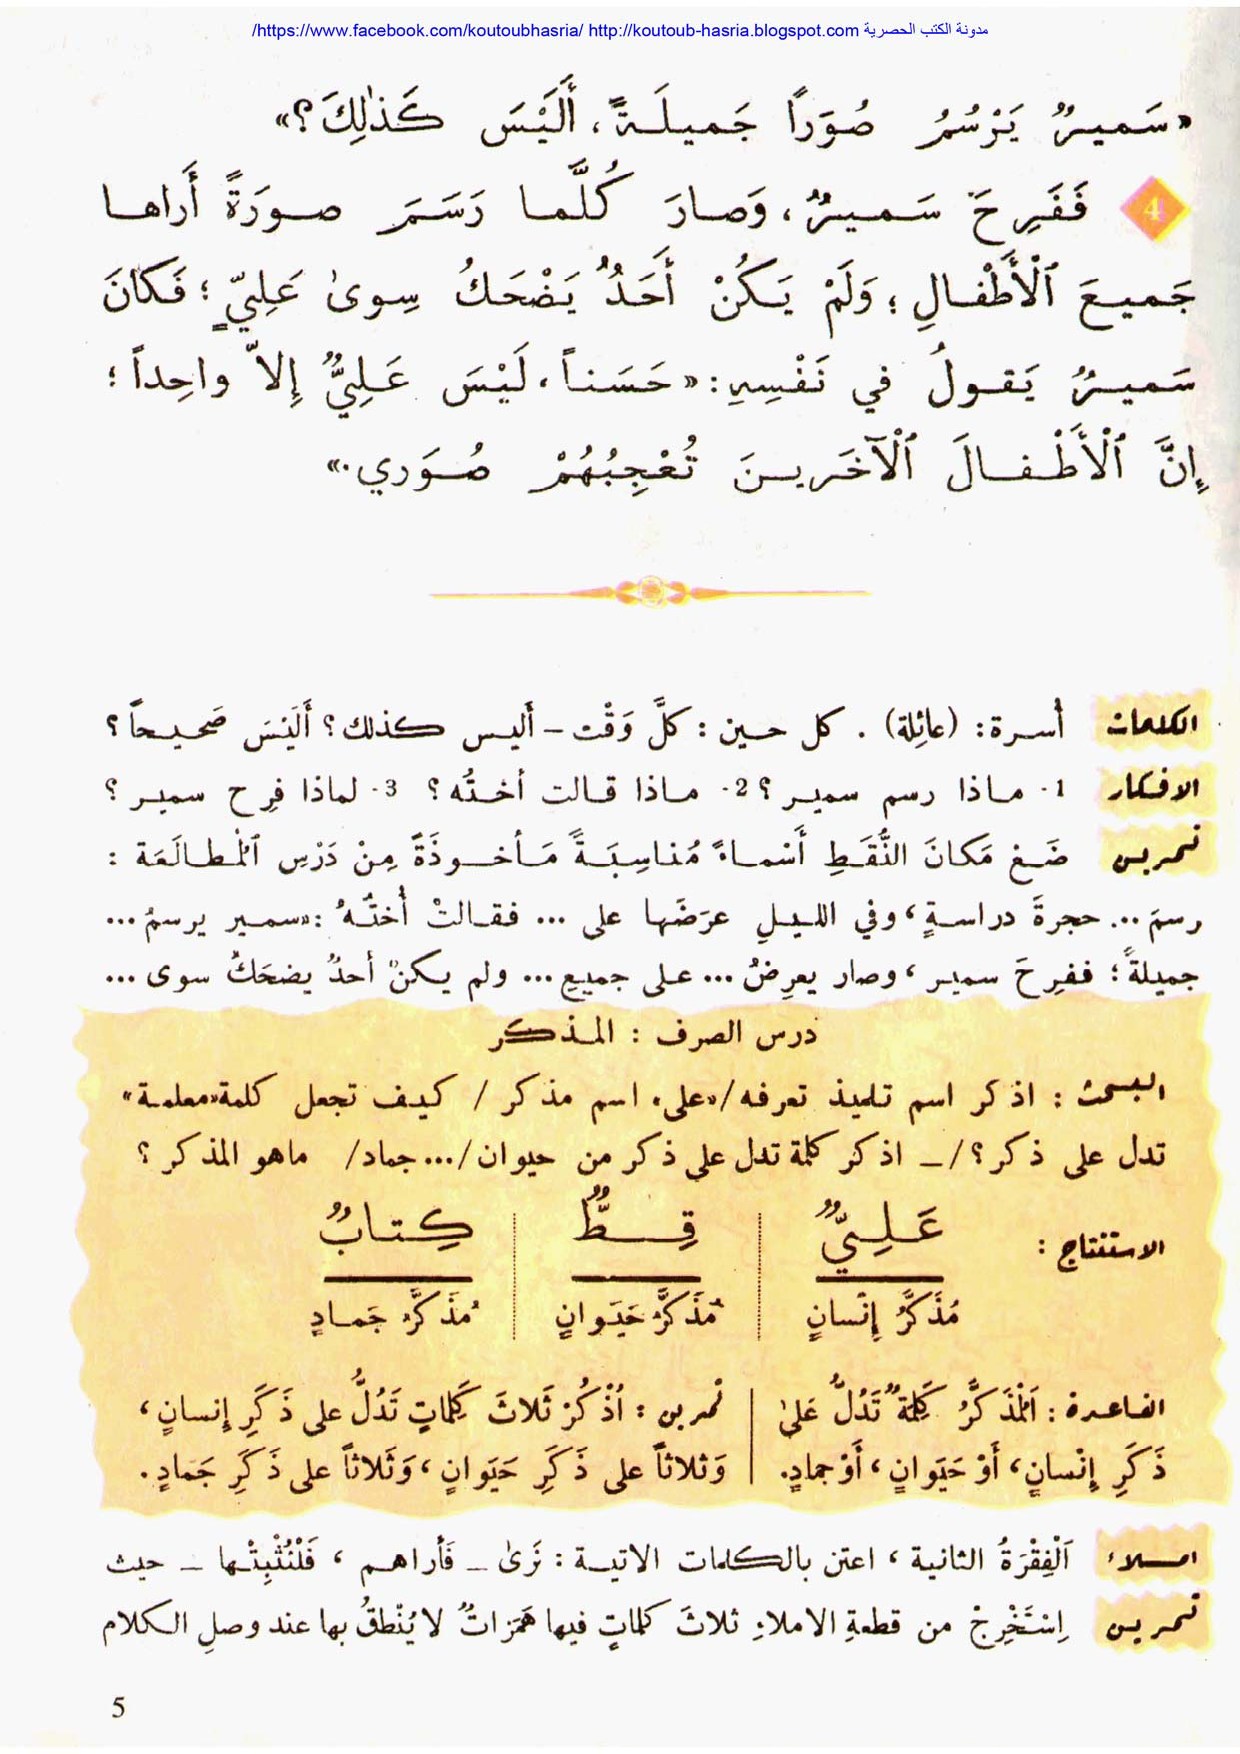 https://www.facebook.com/koutoubhasria/ http://koutoub-hasria.blogspot.com مدونة الكتب الحصرية/
«سَميرٌ يَرْسُمُ صُوَراً جَميلَةً، أَلَيْسَ كَذٰلِكَ؟»
4 فَفَرِحَ سَميرٌ، وَصارَ كُلَّما رَسَمَ صورَةً أَراها
جَميعَ ٱلْأَطْفالِ؛ وَلَمْ يَكُنْ أَحَدٌ يَضْحَكُ سِوىٰ عَلِيٍّ؛ فَكانَ
سَميرٌ يَقولُ في نَفْسِهِ: «حَسَناً، لَيْسَ عَلِيٌّ إِلاَّ واحِداً؛
إِنَّ ٱلْأَطْفالَ ٱلْآخَرينَ تُعْجِبُهُمْ صُوَري.»
الكلمات أسرة: (عائِلة). كل حين: كلَّ وَقْت – أليس كذلك؟ أَلَيْسَ صَحيحاً؟
الافكار 1. ماذا رسم سمير؟ 2. ماذا قالت أختُه؟ 3. لماذا فرِح سمير؟
تمرين ضَعْ مَكانَ النُّقَطِ أَسْماءً مُناسِبَةً مَأخوذَةً مِنْ دَرْسِ ٱلْمُطالَعَة:
رسمَ ... حجرةَ دراسةٍ، وفي الليلِ عرَضَها على ... فقالتْ أُختُهُ: «سمير يرسمُ ...
جميلةً؛ ففرِحَ سمير، وصار يعرِضُ ... على جميعِ ... ولم يكنْ أحدٌ يضحَكُ سوى ...
درس الصرف: المذكر
البحث: اذكر اسم تلميذ تعرفه/«علي» اسم مذكر / كيف تجعل كلمة «معلمة»
تدل على ذكر؟/ – اذكر كلمة تدل على ذكر من حيوان/... جماد/ ماهو المذكر؟
الاستنتاج: عَلِيٌّ قِطٌّ كِتابٌ
مُذَكَّرُ إِنْسانٍ مُذَكَّرُ حَيَوانٍ مُذَكَّرُ جَمادٍ
القاعدة: اَلْمُذَكَّرُ كَلِمَةٌ تَدُلُّ عَلىٰ
ذَكَرِ إِنْسانٍ، أَوْ حَيَوانٍ، أَوْ جمادٍ.
تمرين: اُذْكُرْ ثَلاثَ كَلِماتٍ تَدُلُّ على ذَكَرِ إِنسانٍ،
وَثَلاثاً على ذَكَرِ حَيَوانٍ، وَثَلاثاً على ذَكَرِ جَمادٍ.
املاء اَلْفِقْرَةُ الثانية، اعتن بالكلمات الاتية: نَرىٰ – فَأراهم، فَلْنُثْبِتْها – حيث
تمرين اِسْتَخْرِجْ من قطعةِ الاملاءِ ثلاثَ كلماتٍ فيها هَمَزاتٌ لا يُنْطقُ بها عند وصلِ الكلام
5